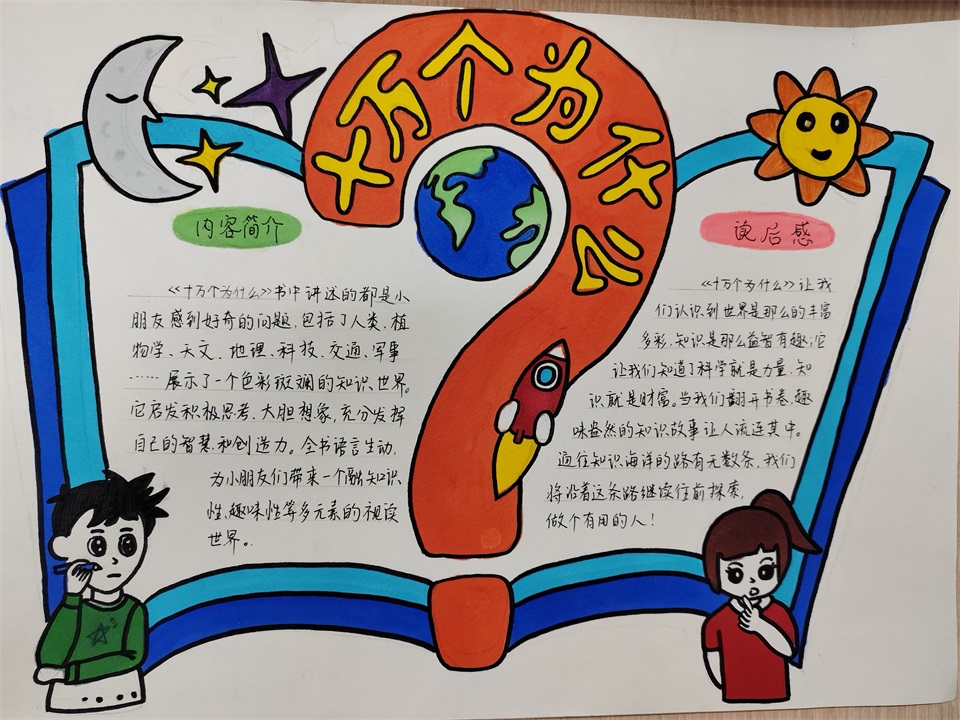 十万个为什么
内容简介
《十万个为什么》书中讲述的都是小
朋友感到好奇的问题,包括了人类、植
物学、天文、地理、科技、交通、军事
……展示了一个色彩斑斓的知识世界。
它启发积极思考、大胆想象,充分发挥
自己的智慧和创造力。全书语言生动,
为小朋友们带来一个融知识
性、趣味性等多元素的视读
世界。
读后感
《十万个为什么》让我
们认识到世界是那么的丰富
多彩,知识是那么益智有趣;它
让我们知道了科学就是力量,知
识就是财富。当我们翻开书卷,趣
味盎然的知识故事让人流连其中。
通往知识海洋的路有无数条,我们
将沿着这条路继续往前探索,
做个有用的人!